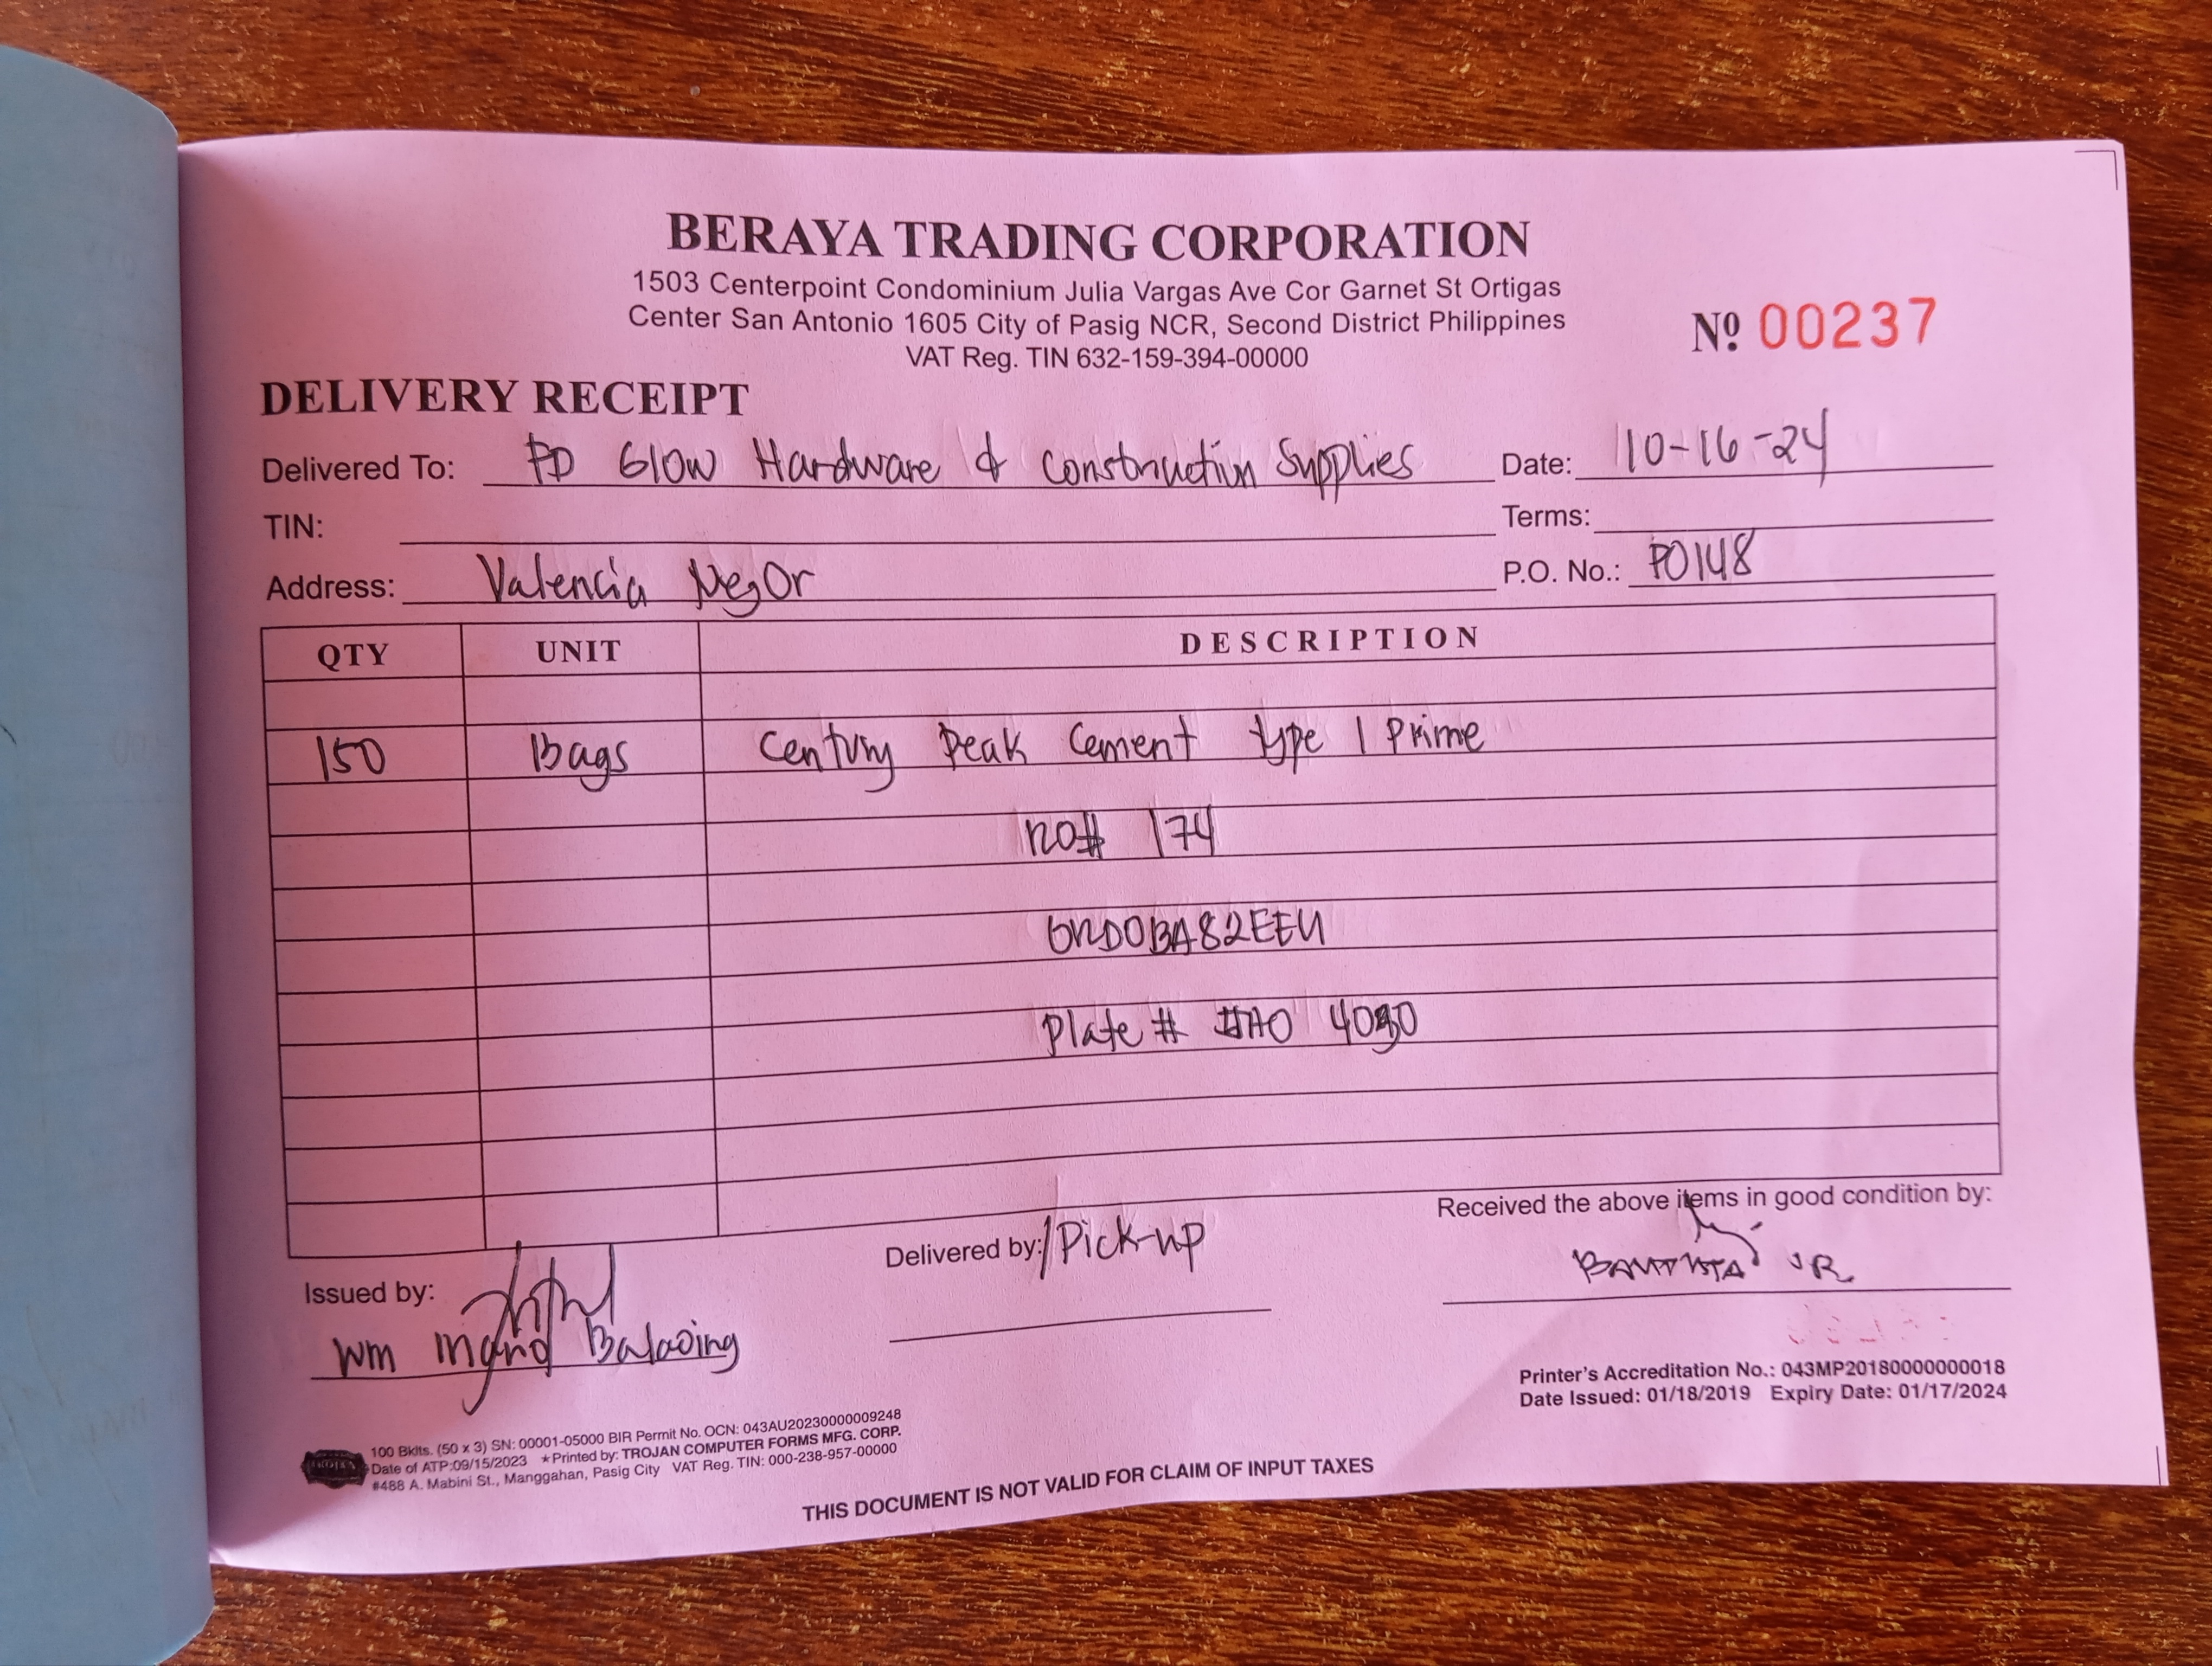 BERAYA TRADING CORPORATION
1503 Centerpoint Condominium Julia Vargas Ave Cor Garnet St Ortigas
Center San Antonio 1605 City of Pasig NCR, Second District Philippines
VAT Reg. TIN 632-159-394-00000
Nº 00237
DELIVERY RECEIPT
Delivered To: PD Glow Hardware & Construction Supplies Date: 10-16-24
TIN: Terms:
Address: Valencia NegOr P.O. No.: PO148
QTY UNIT DESCRIPTION
150 Bags Century Peak Cement type 1 Prime
174
Plate #
Received the above items in good condition by:
Delivered by: /Pick-up
JR.
Issued by:
wm
Printer's Accreditation No.: 043MP20180000000018
Date Issued: 01/18/2019 Expiry Date: 01/17/2024
100 Bklts. (50 x 3) SN: 00001-05000 BIR Permit No. OCN: 043AU20230000009248
Date of ATP:09/15/2023 ★Printed by: TROJAN COMPUTER FORMS MFG. CORP.
#488 A. Mabini St., Manggahan, Pasig City VAT Reg. TIN: 000-238-957-00000
THIS DOCUMENT IS NOT VALID FOR CLAIM OF INPUT TAXES